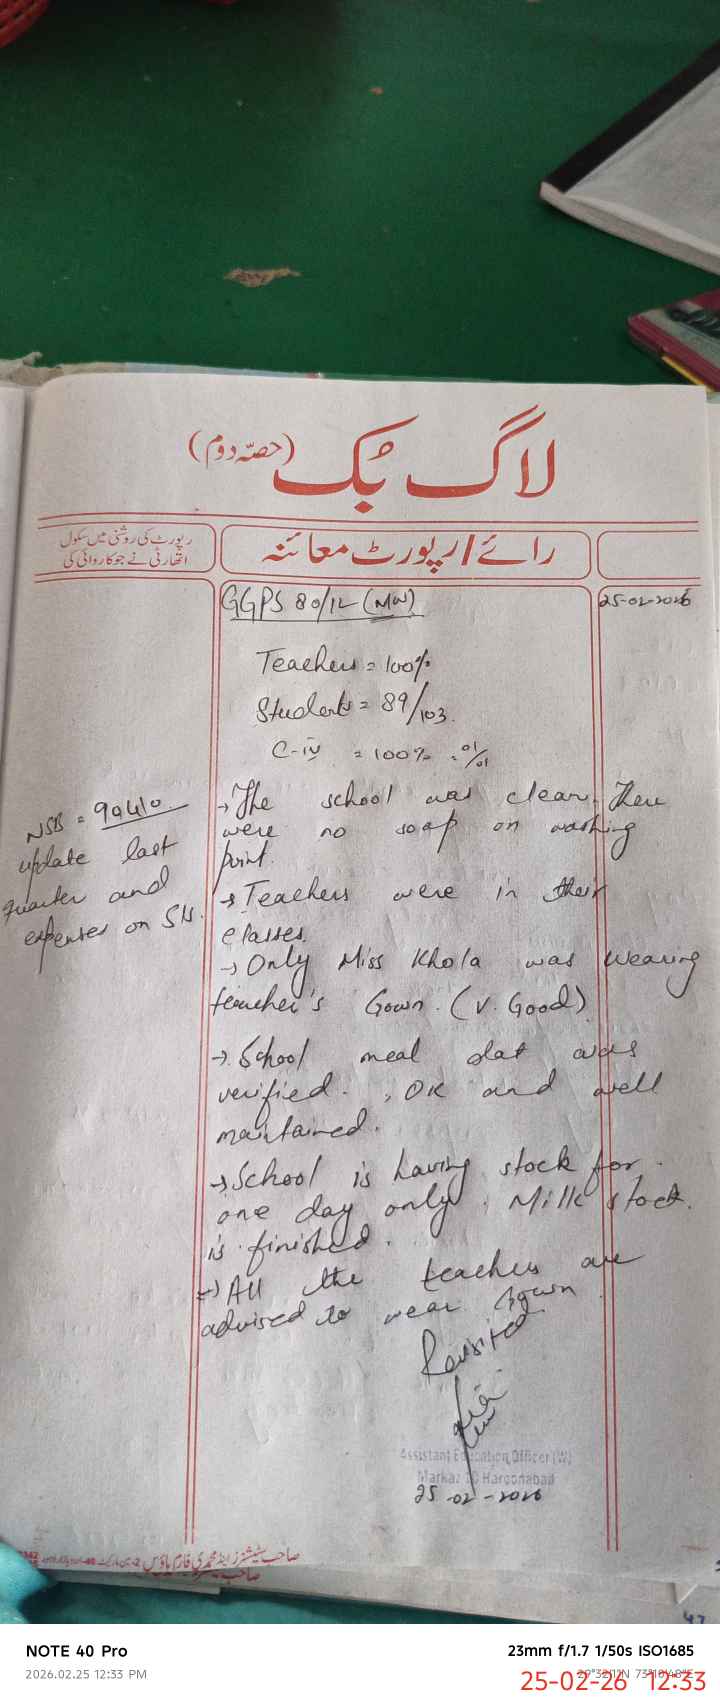 لاگ بُک (حصّہ دوم)
رپورٹ کی روشنی میں سکول
اتھارٹی نے جو کاروائی کی
رائے / رپورٹ معائنہ
GGPS 80/12 (MW)
25-02-2026
Teachers = 100%
Students = 89/103.
C-iv = 100% = 01/01
→ The school was clean. There
were no soap on washing
point.
→ Teachers were in their
classes.
→ Only Miss Khola was wearing
teacher's Gown. (V. Good)
→ School meal dat was
verified. , OK and well
maintained.
→ School is having stock for
one day only. Milk stock
is finished.
→ All the teachers are
advised to wear Gown.
NSB = 90410
update last
quarter and
expenses on SIS.
Revisited
Assistant Education Officer (W)
Markaz 10 Haroonabad
25-02-2026
صاحب سٹیشنرز اینڈ محمدی فارم ہاؤس
47
NOTE 40 Pro
2026.02.25 12:33 PM
23mm f/1.7 1/50s ISO1685
25-02-26 12:33